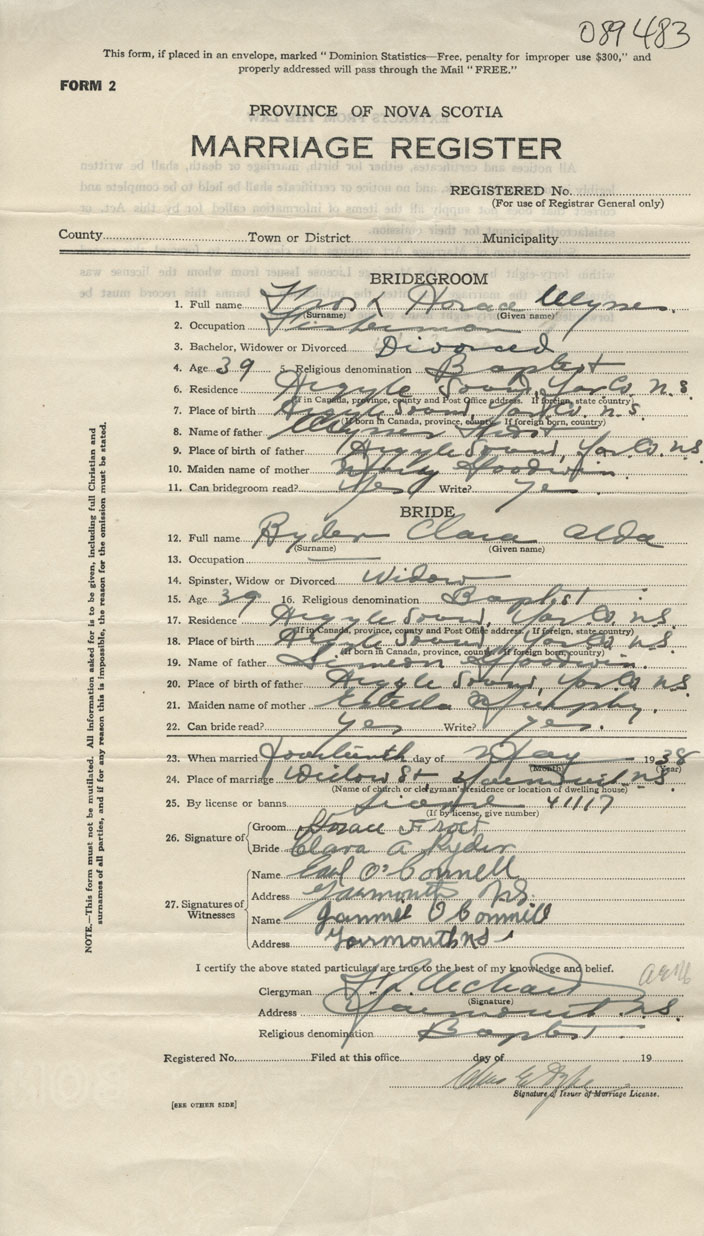 089483
This form, if placed in an envelope, marked "Dominion Statistics—Free, penalty for improper use $300," and
properly addressed will pass through the Mail "FREE."
FORM 2
PROVINCE OF NOVA SCOTIA
MARRIAGE REGISTER
REGISTERED No.
(For use of Registrar General only)
County Town or District Municipality
BRIDEGROOM
1. Full name Frost Horace Ulysses
(Surname) (Given name)
2. Occupation Fisherman
3. Bachelor, Widower or Divorced Divorced
4. Age 39 5. Religious denomination Baptist
6. Residence Argyle Sound, Yar Co. N.S.
(If in Canada, province, county and Post Office address. If foreign, state country)
7. Place of birth Argyle Sound, Yar Co. N.S.
(If born in Canada, province, county. If foreign born, country)
8. Name of father Ulysses Frost
9. Place of birth of father Argyle Sound, Yar Co. N.S.
10. Maiden name of mother Goodwin.
11. Can bridegroom read? Yes Write? yes
BRIDE
12. Full name Ryder Clara Alda
(Surname) (Given name)
13. Occupation
14. Spinster, Widow or Divorced Widow
15. Age 39 16. Religious denomination Baptist
17. Residence Argyle Sound, Yar Co. N.S.
(If in Canada, province, county and Post Office address. If foreign, state country)
18. Place of birth Argyle Sound, Yar Co. N.S.
(If born in Canada, province, county. If foreign born, country)
19. Name of father Simeon Goodwin.
20. Place of birth of father Argyle Sound, Yar Co. N.S.
21. Maiden name of mother Murphy.
22. Can bride read? yes Write? yes.
23. When married fourteenth day of May 1938
(Month) (Year)
24. Place of marriage Willow St Yarmouth N.S.
(Name of church or clergyman's residence or location of dwelling house)
25. By license or banns License 41117
(If by license, give number)
26. Signature of
Groom Horace Frost
Bride Clara A Ryder
27. Signatures of Witnesses
Name Earl O'Connell
Address Yarmouth N.S.
Name O'Connell
Address Yarmouth NS
I certify the above stated particulars are true to the best of my knowledge and belief.
Clergyman
(Signature)
Address Yarmouth N.S.
Religious denomination Baptist
Registered No. Filed at this office day of 19
Signature of Issuer of Marriage License.
[SEE OTHER SIDE]
NOTE.—This form must not be mutilated. All information asked for is to be given, including full Christian and
surnames of all parties, and if for any reason this is impossible, the reason for the omission must be stated.